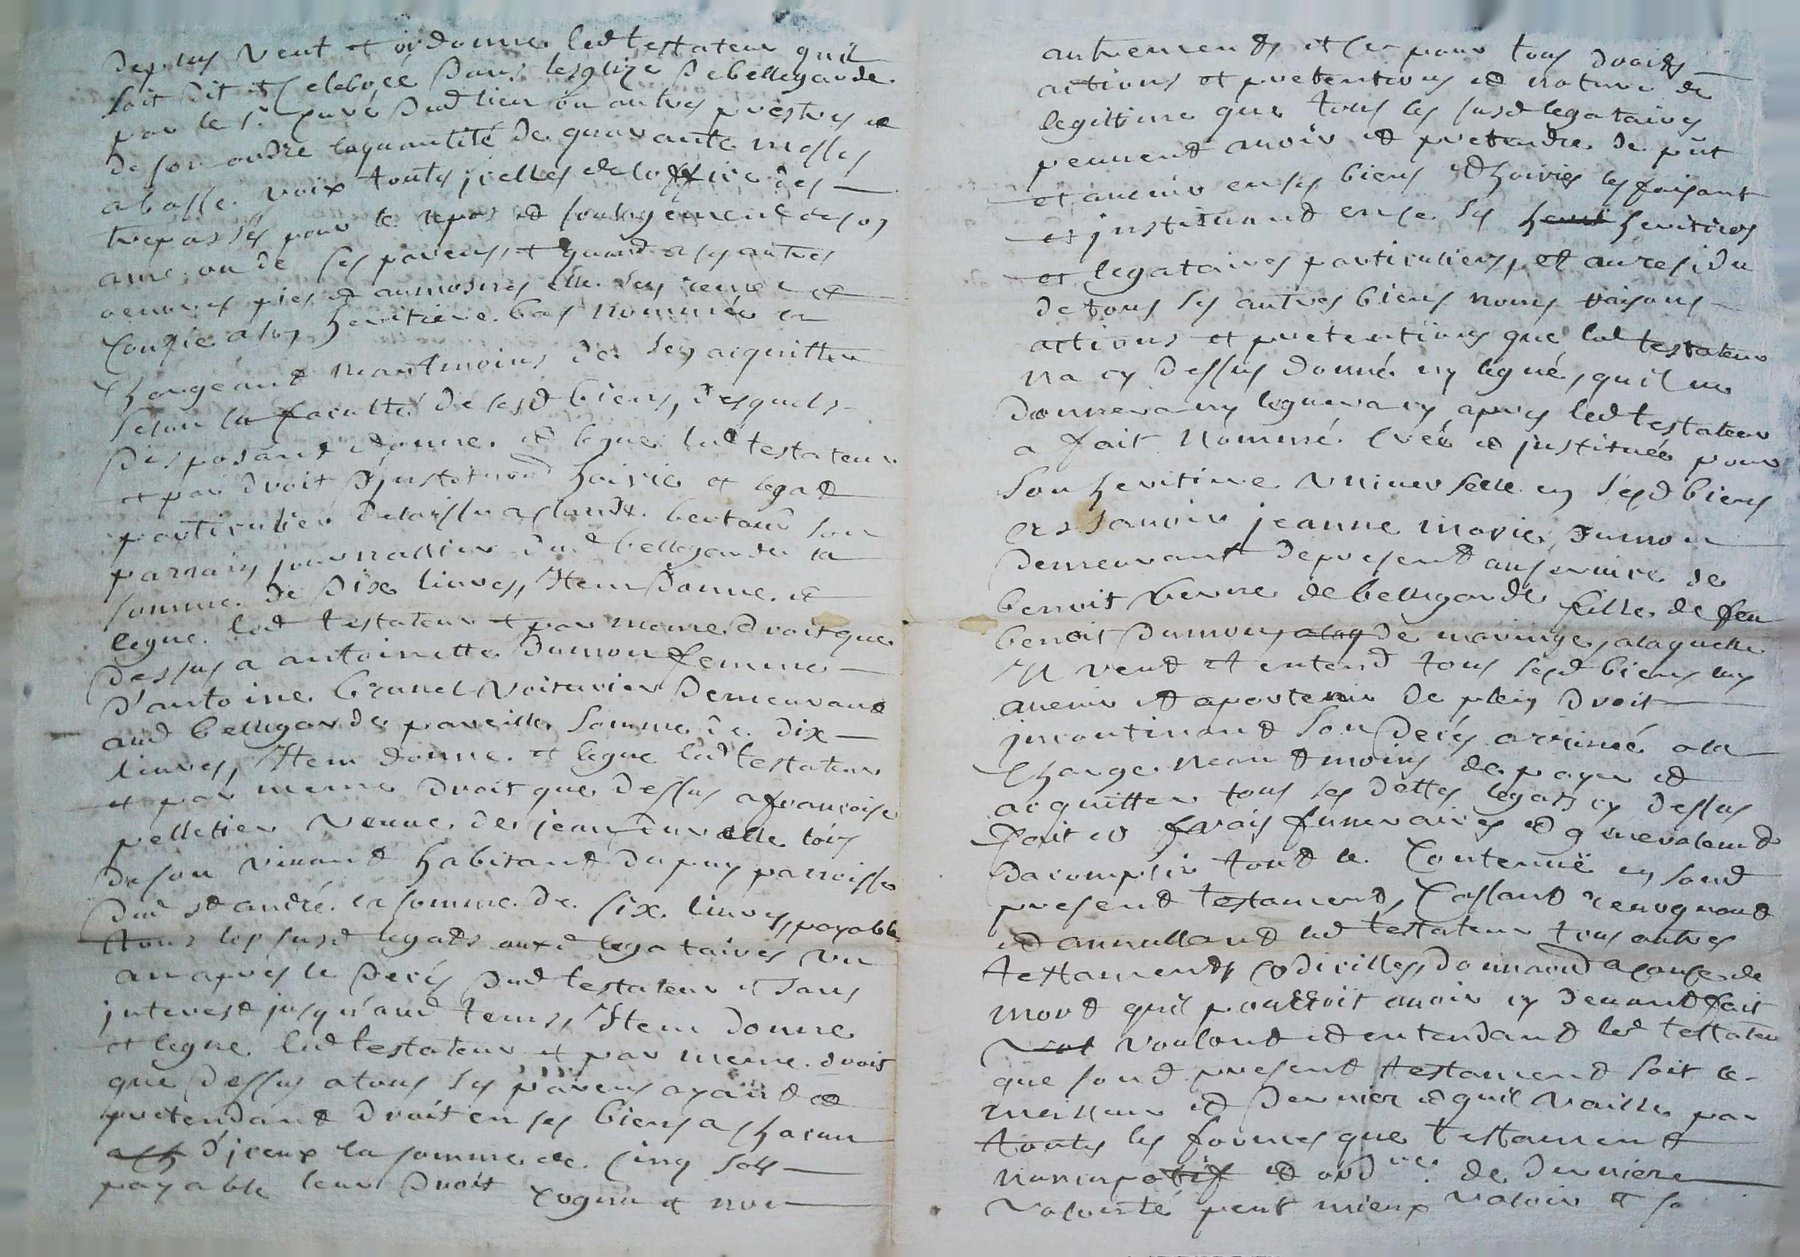 De plus veut et ordonne led testateur quil
soit dit et celebree dans lesglize de bellegarde
par le sr curé dud lieu ou autres prestres de
de son ordre la quantité de quarante messes
a basse voix toutes jcelles de loffice des
trepassés pour le repos et soulagement de son
ame ou de ses parens et quand a ses autres
oeuvres pies et aumosnes elle sen remet et
confie a son heritiere bas nommée la
chargeant neantmoins de sen acquitter
selon la faculté de sesd biens, desquels
disposant donne et legue led testateur
et par droit d'jnstitution hoirie et legat
particulier delaisse a claude bertaud son
parrain journallier dud bellegarde la
somme de dix livres, Item donne et
legue led testateur et par meme droit que
dessus a antoinette dumon femme
d'antoine brunel voiturier demeurant
aud bellegarde pareille somme de dix
livres, Item donne et legue led testateur
et par meme droit que dessus a francoise
pelletier veuve de jean durelle lors
de son vivant habitant du puy parroisse
dud st andré la somme de six livres, payable
tous les susd legats auxd legataires un
an apres le decés dud testateur et sans
jnterest jusqu'aud tems, Item donne
et legue led testateur et par meme droit
que dessus a tous ses parens ayant et
pretendant droit en ses biens a chacun
d'jceux la somme de cinq sols
payable leur droit cognu et non
autrement et ce pour tous droits
actions et pretentions et nature de
legittime que tous les susd legataires
peuvent avoir et pretendre de pñt
et avenir en ses biens et hoiries les faisant
et jnstituant en ce ses heritiers
et legataires particuliers, et au residu
de tous ses autres biens noms raisons
actions et pretentions que led testateur
na cy dessus donné ny legué, quil ne
donnera ny leguera cy apres led testateur
a fait nommé creé et jnstituée pour
son heritiere universelle en sesd biens
est a scavoir jeanne marie dumon
demeurant de present au service de
benoit verne de bellegarde fille de feu
benoit dumon de maringe, a laquelle
Il veut et entend tous sesd biens luy
avenir et apartenir de plein droit
jncontinant son decés arrivé a la
charge neantmoins de payer et
acquitter tous ses dettes legats cy dessus
fait et frais funeraires et generalement
dacomplir tout le contenu en sond
present testament, Cassant revoquant
et annullant led testateur tous autres
testaments codicilles, donnaond a cause de
mort quil pourroit avoir cy devant fait
voulant et entendant led testateur
que sond present testament soit le
meilleur et dernier et quil vaille par
toutes les formes que testament
nuncupatif et ordre de derniere
volonté peut mieux valoir et sa